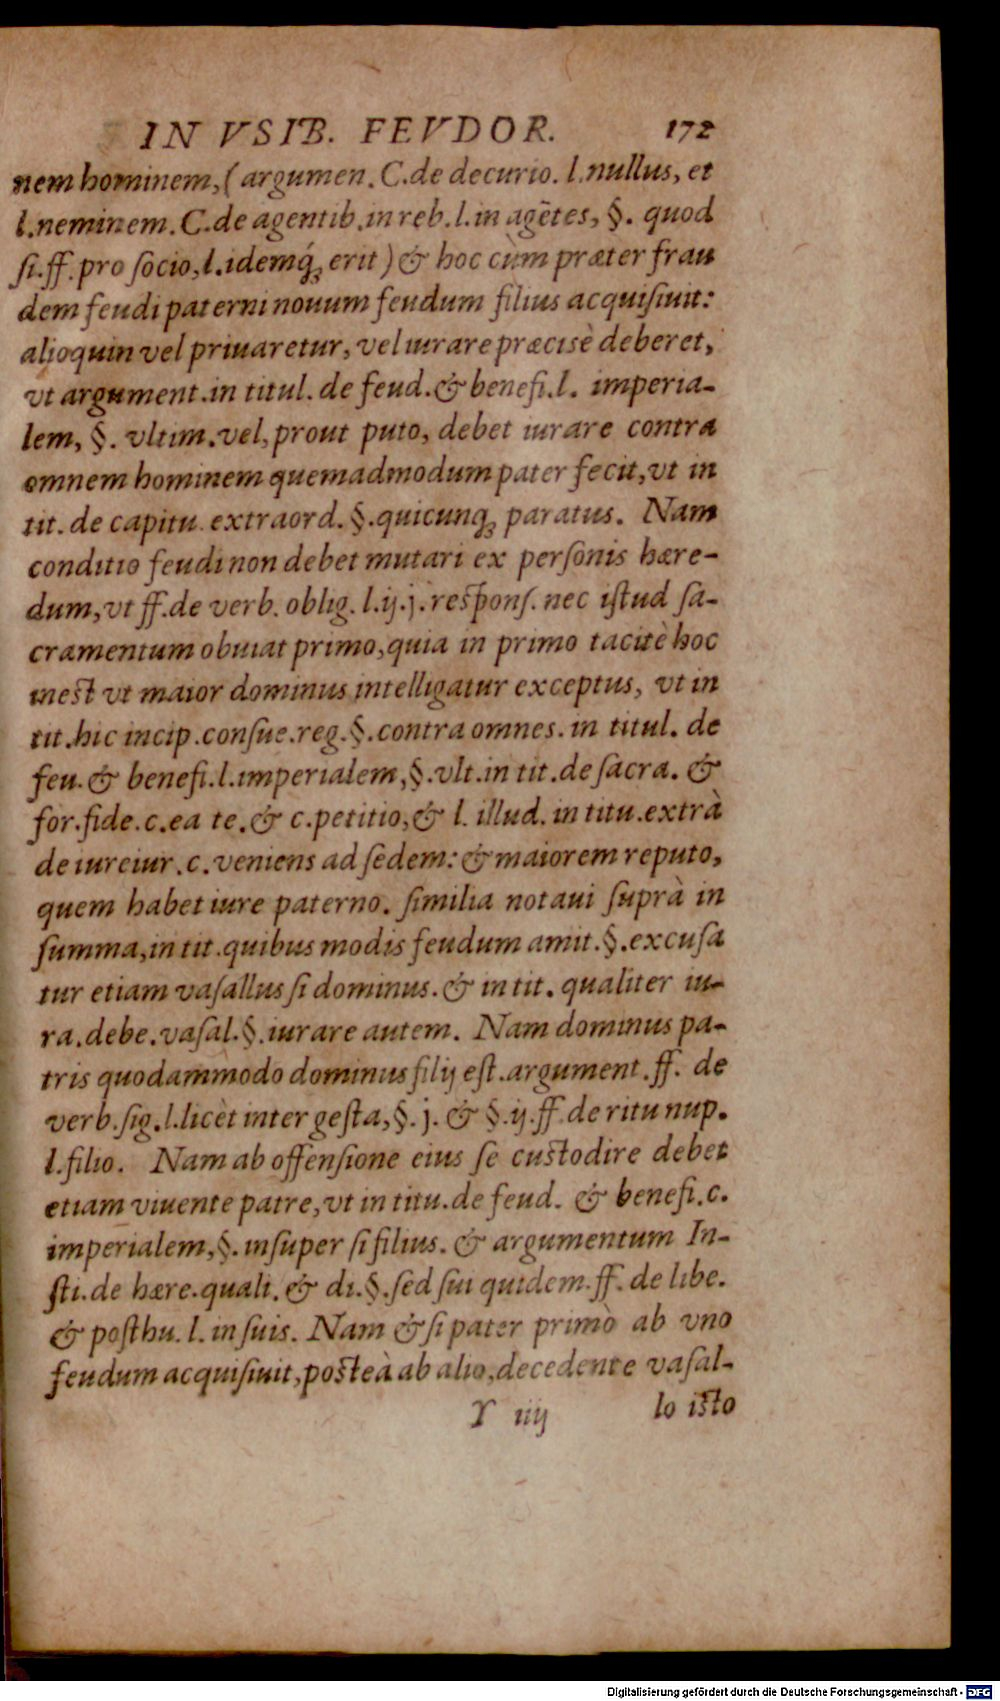 IN VSIB. FEVDOR. 172
nem hominem, ( argumen. C.de decurio. l.nullus, et
l.neminem. C.de agentib.in reb.l.in agẽtes, §. quod
ſi.ff.pro ſocio,l.idemq́; erit ) & hoc cùm præter frau
dem feudi paterni nouum feudum filius acquiſiuit:
alioquin vel priuaretur, vel iurare præcisè deberet,
vt argument.in titul. de feud.& benefi.l. imperia-
lem, §. vltim.vel, prout puto, debet iurare contra
omnem hominem quemadmodum pater fecit,vt in
tit. de capitu. extraord. §.quicunq; paratus. Nam
conditio feudi non debet mutari ex perſonis hære-
dum,vt ff.de verb. oblig. l.ij.j. reſponſ. nec iſtud ſa-
cramentum obuiat primo,quia in primo tacitè hoc
ineſt vt maior dominus intelligatur exceptus, vt in
tit.hic incip.conſue.reg.§.contra omnes. in titul. de
feu. & benefi.l.imperialem,§.vlt.in tit.de ſacra. &
for.fide.c.ea te.& c.petitio,& l. illud. in titu.extrà
de iureiur.c.veniens ad ſedem: & maiorem reputo,
quem habet iure paterno. ſimilia notaui ſuprà in
ſumma,in tit.quibus modis feudum amit.§.excuſa
tur etiam vaſallus ſi dominus. & in tit. qualiter iu-
ra.debe.vaſal.§.iurare autem. Nam dominus pa-
tris quodammodo dominus filij eſt.argument.ff. de
verb.ſig.l.licèt inter geſta,§.j. & §.ij.ff.de ritu nup.
l.filio. Nam ab offenſione eius ſe cuſtodire debet
etiam viuente patre,vt in titu.de feud. & benefi.c.
imperialem,§.inſuper ſi filius. & argumentum In-
ſti.de hære.quali.& di.§.ſed ſui quidem.ff.de libe.
& poſthu. l. in ſuis. Nam & ſi pater primò ab vno
feudum acquiſiuit,poſteà ab alio,decedente vaſal-
Y iiij lo iſto
Digitalisierung gefördert durch die Deutsche Forschungsgemeinschaft - DFG